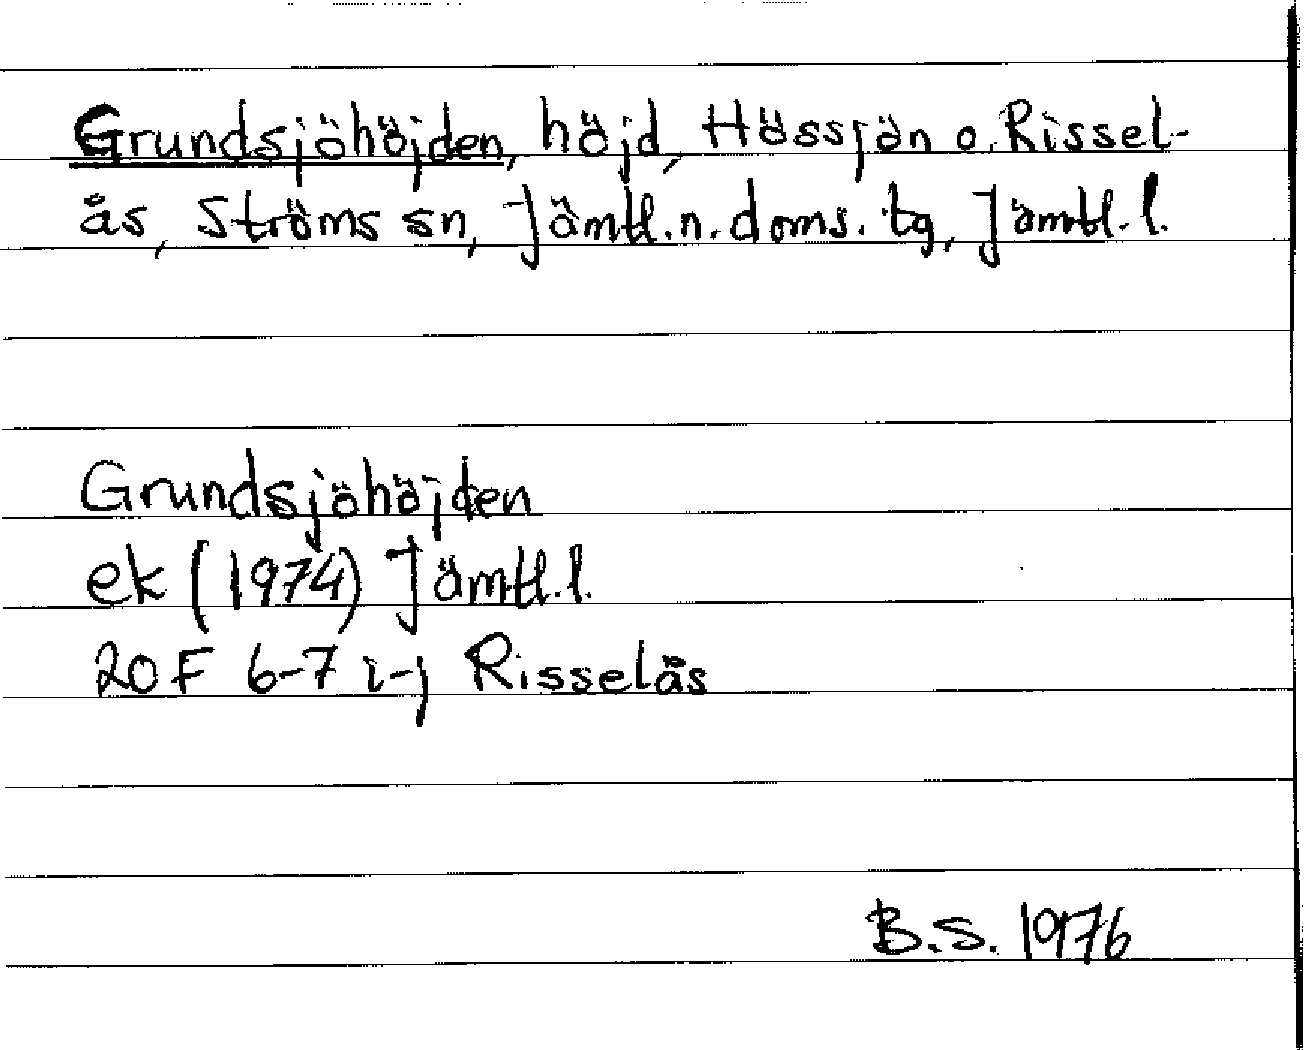 Grundsjöhöjden, höjd, Hössjön o. Rissel-
ås, Ströms sn, Jämtl. n. doms. tg, Jämtl. l.
Grundsjöhöjden
ek (1974) Jämtl. l.
20 F 6-7 i-j Risselås
B.S. 1976